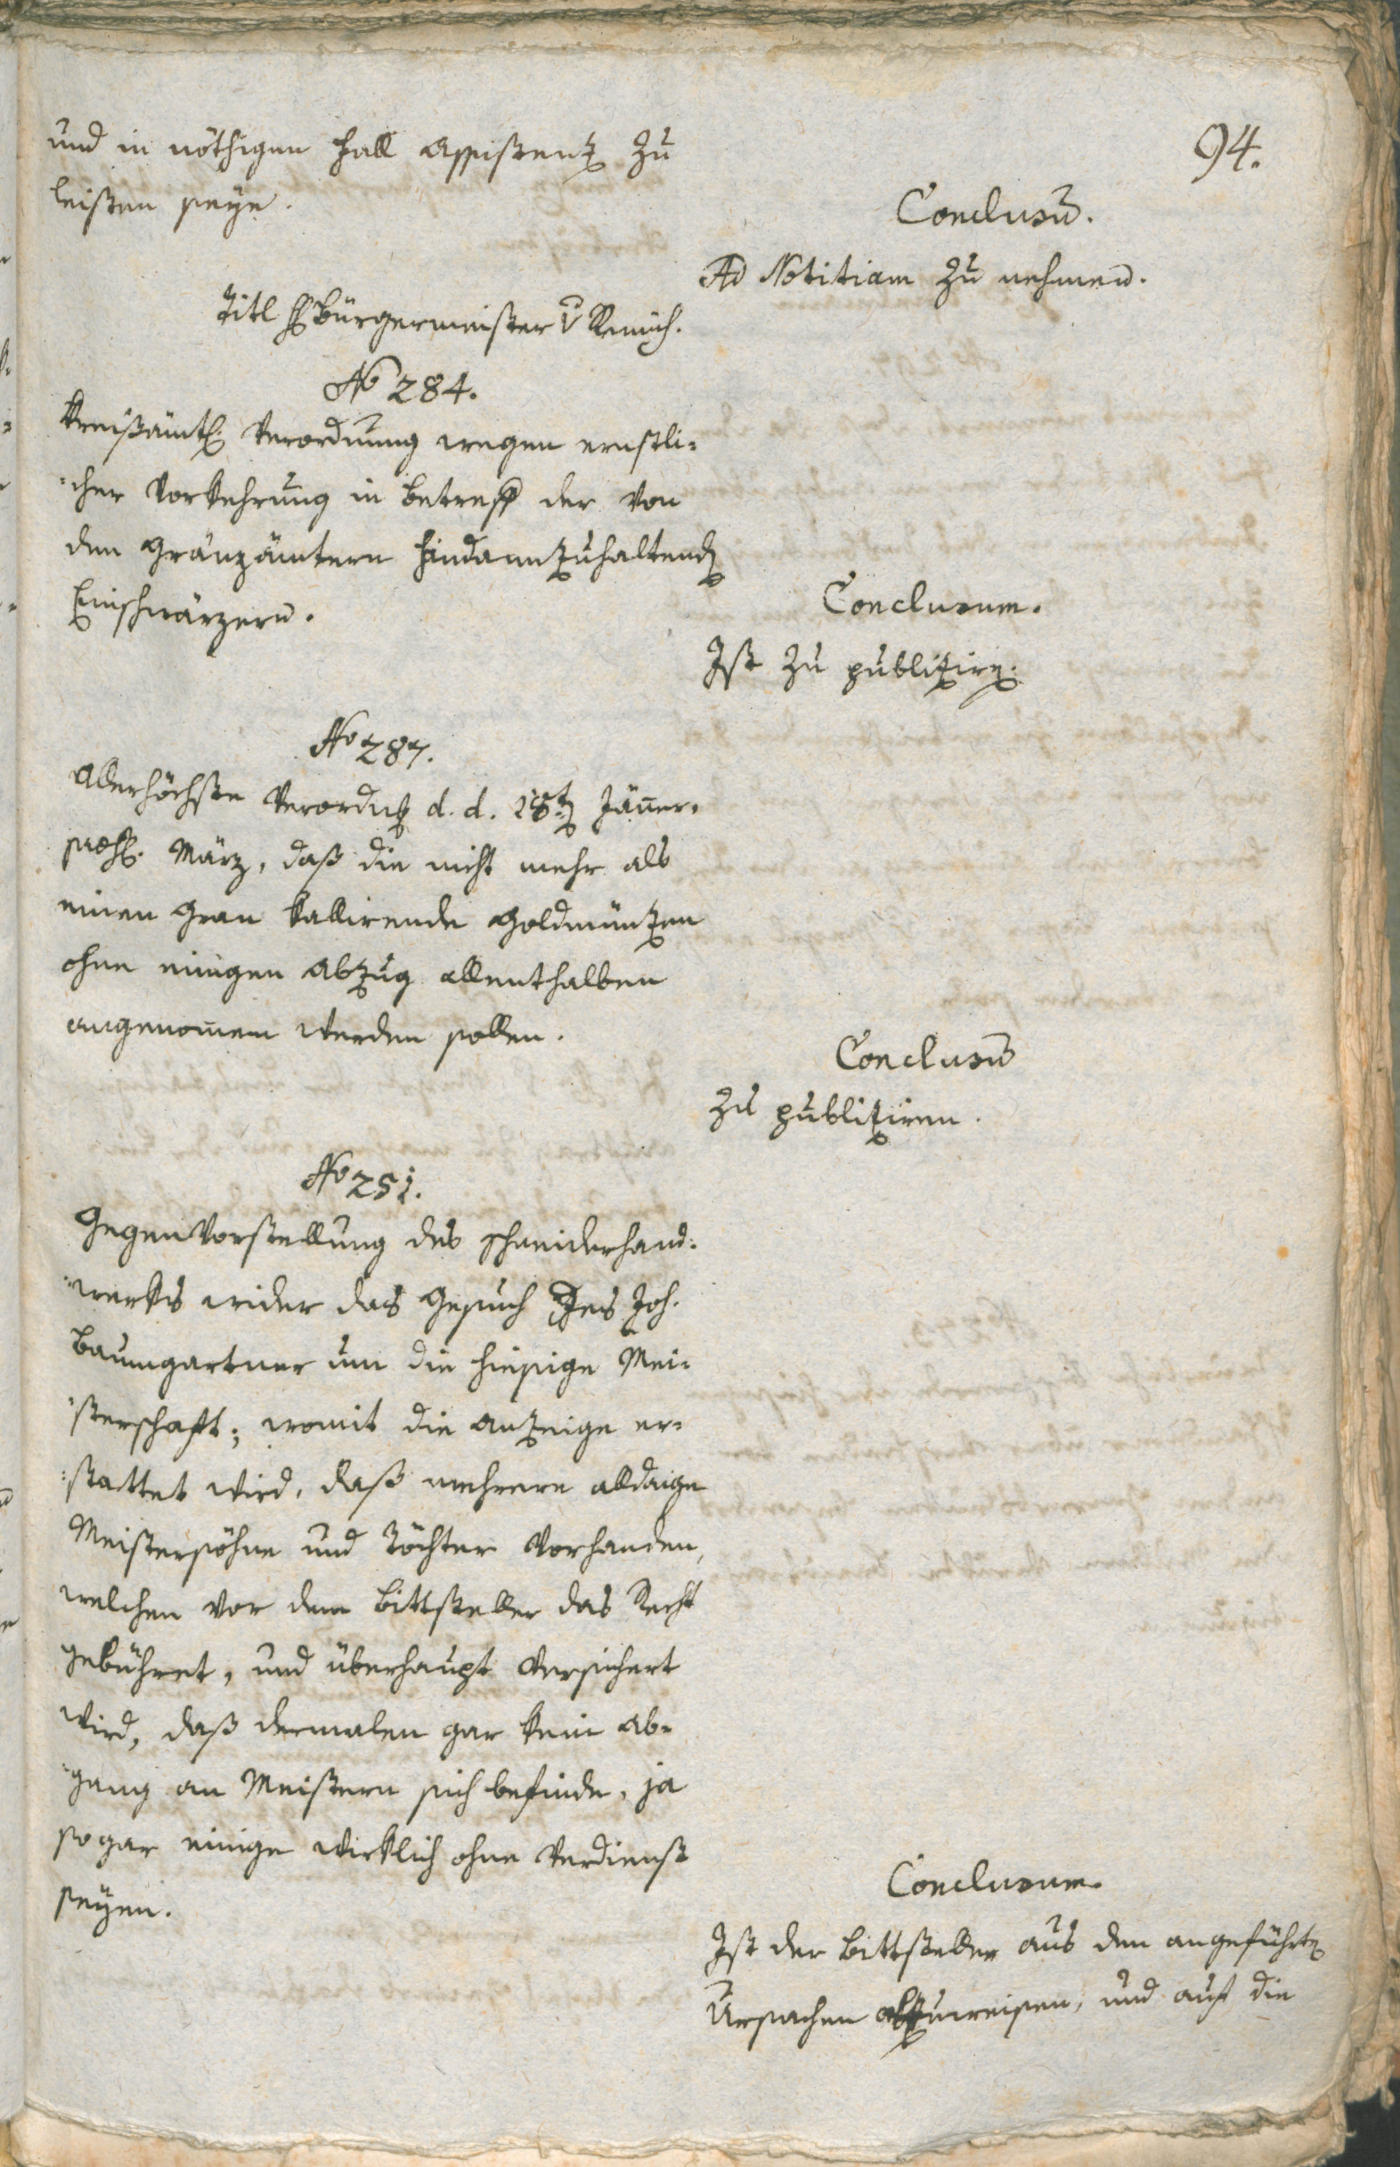 94.
und in nöthigen Fall Assistenz zu
leisten seye.
Conclusū.
Ad Notitiam zu nehmen.
Titl H Bürgermeister v Remich.
No 284.
Kreisämtl. Verordnung wegen ernstli-
-cher Vorkehrung in Betreff der von
den Gränzämtern hindanzuhaltend
Einschwärzern.
Conclusum.
Ist zu publizirn.
No 287.
Allerhöchste Verordng d. d. 18t Jäner.
März, daß die nicht mehr als
einen Gran kallirende Goldmünzen
ohne einigen Abzug allenthalben
angenomen werden sollen.
Conclusū
zu publiziren.
No 251.
Gegenvorstellung des Schneiderhand-
-werks wider das Gesuch des Joh.
Baumgartner um die hiesige Mei-
-sterschaft; womit die Anzeige er-
-stattet wird, daß mehrere alldaige
Meistersöhne und Töchter vorhanden,
welchen vor dem Bittsteller das Recht
gebühret, und überhaupt versichert
wird, daß dermalen gar kein Ab-
-gang an Meistern sich befinde, ja
so gar einige wirklich ohne Verdienst
seyen.
Conclusum.
Ist der Bittsteller aus den angeführt
Ursachen abzuweisen, und auf die